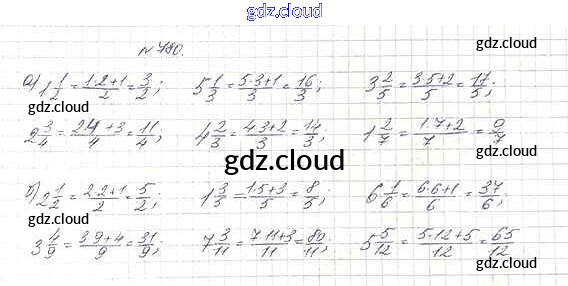 gdz.cloud
№780.
gdz.cloud
а) 1 1/2 = (1·2+1)/2 = 3/2; 5 1/3 = (5·3+1)/3 = 16/3; 3 2/5 = (3·5+2)/5 = 17/5;
2 3/4 = (2·4+3)/4 = 11/4; 4 2/3 = (4·3+2)/3 = 14/3; 1 2/7 = (1·7+2)/7 = 9/7
gdz.cloud
gdz.cloud
gdz.cloud
б) 2 1/2 = (2·2+1)/2 = 5/2; 1 3/5 = (1·5+3)/5 = 8/5; 6 1/6 = (6·6+1)/6 = 37/6;
3 4/9 = (3·9+4)/9 = 31/9; 7 3/11 = (7·11+3)/11 = 80/11; 5 5/12 = (5·12+5)/12 = 65/12
gdz.cloud
gdz.cloud